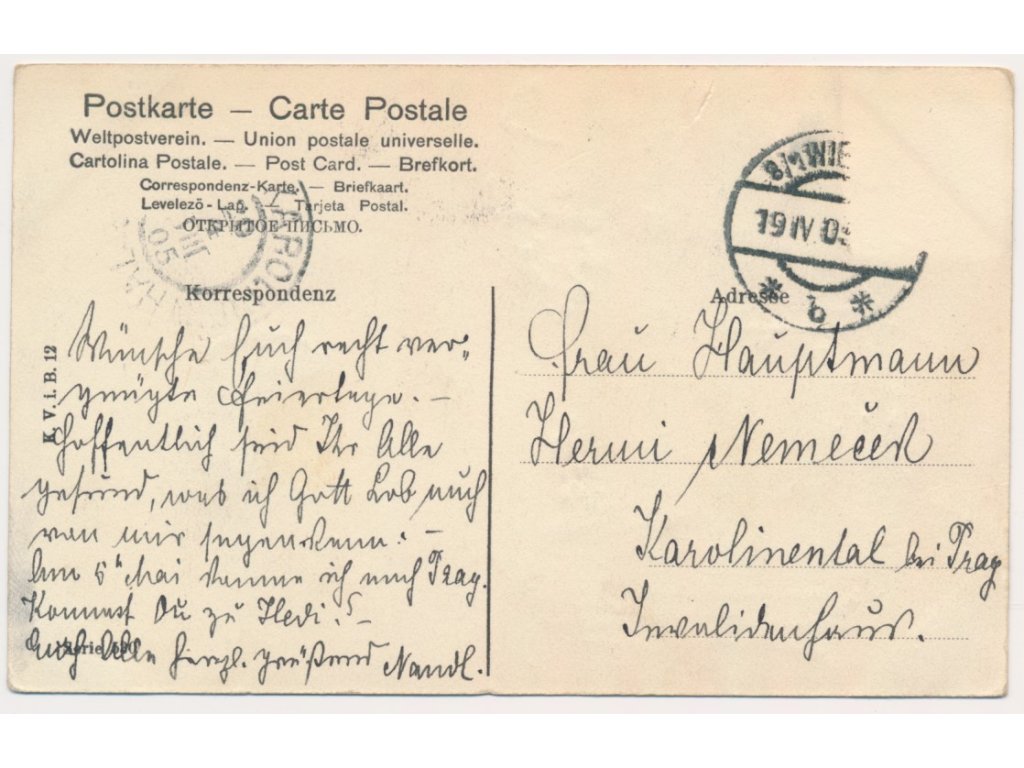 Postkarte — Carte Postale
Weltpostverein. — Union postale universelle.
Cartolina Postale. — Post Card. — Brefkort.
Correspondenz-Karte. — Briefkaart.
Levelező-Lap. — Tarjeta Postal.
ОТКРЫТОЕ ПИСЬМО.
KAROL THAL
05
8/1 WIE
19 IV 0
* b *
Korrespondenz
Adresse
Wünsche Euch recht ver-
gnügte Feiertage. –
Hoffentlich seid Ihr Alle
gesund, was ich Gott Lob auch
von mir sagen kann. –
Am 5ten Mai komme ich nach Prag.
Kommst Du zu Hedi? –
Euch Alle herzl. grüßend Nandl.
K. V. i. B. 12
Serie
Frau Hauptmann
Hermi Nemeček
Karolinental bei Prag
Invalidenhaus.